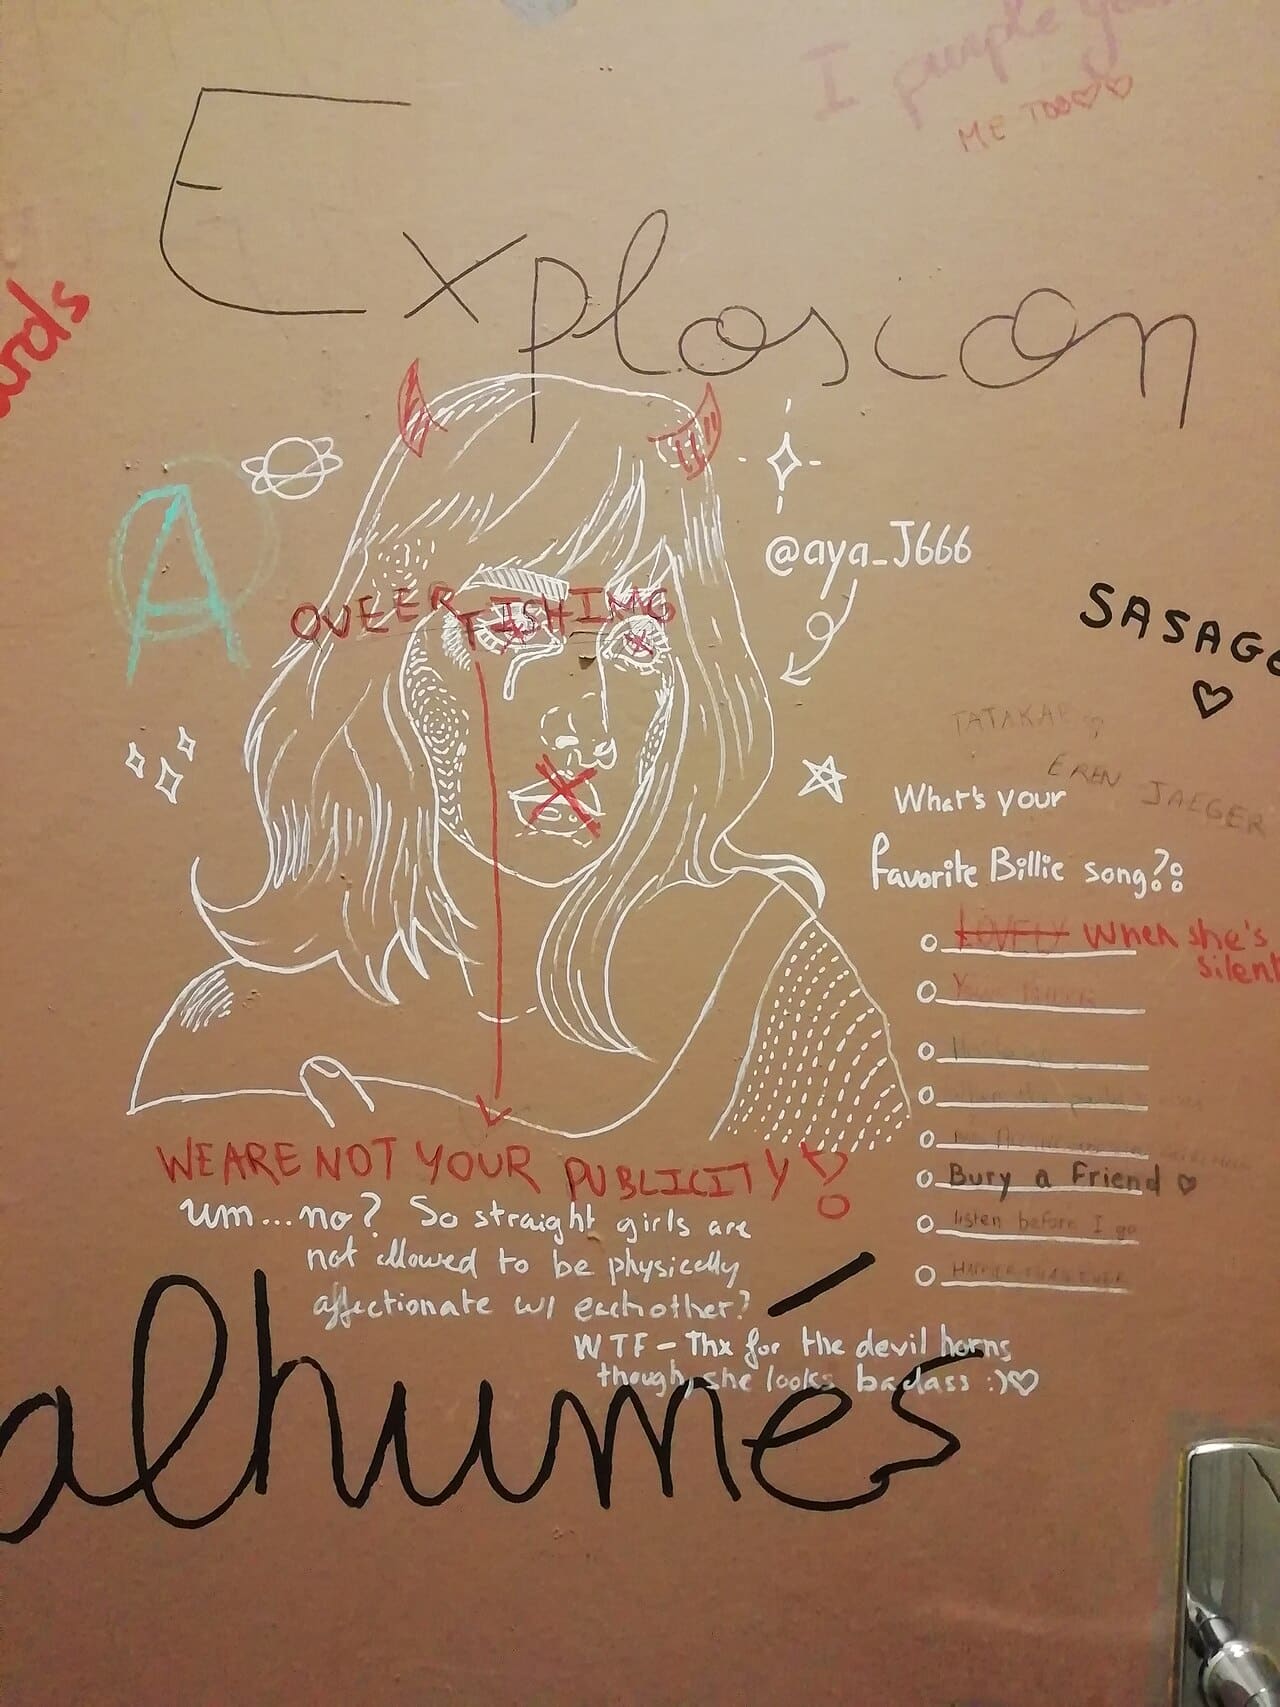 I purple you
ME TOO
Explosion
ards
A
@aya_J666
QUEER FISHING
SASAGE
TATAKAE
EREN JAEGER
What's your
favorite Billie song?
LOVELY When she's
silent
Bury a Friend
listen before I go
HAPPIER THAN EVER
WE ARE NOT YOUR PUBLICITY!
um...no? So straight girls are
not allowed to be physically
affectionate w/ each other?
WTF - Thx for the devil horns
though, she looks badass :)
alhumés